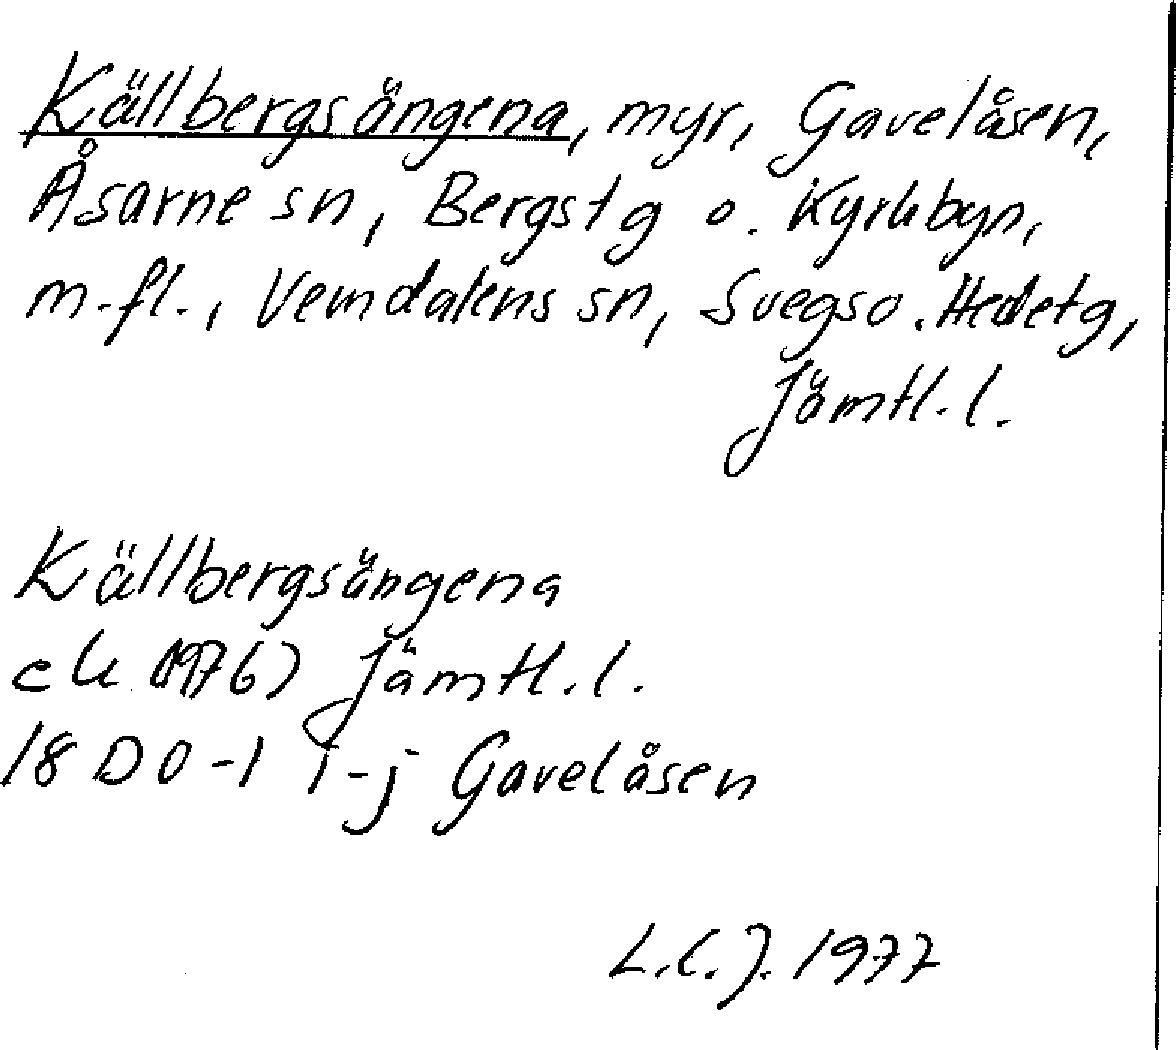 Källbergsängena, myr, Gavelåsen,
Åsarne sn, Bergs tg o. Kyrkbyn,
m.fl., Vemdalens sn, Svegs o. Hede tg,
Jämtl. l.
Källbergsängena
ek (1976) Jämtl. l.
18 D 0-1 i-j Gavelåsen
L.C.J. 1977